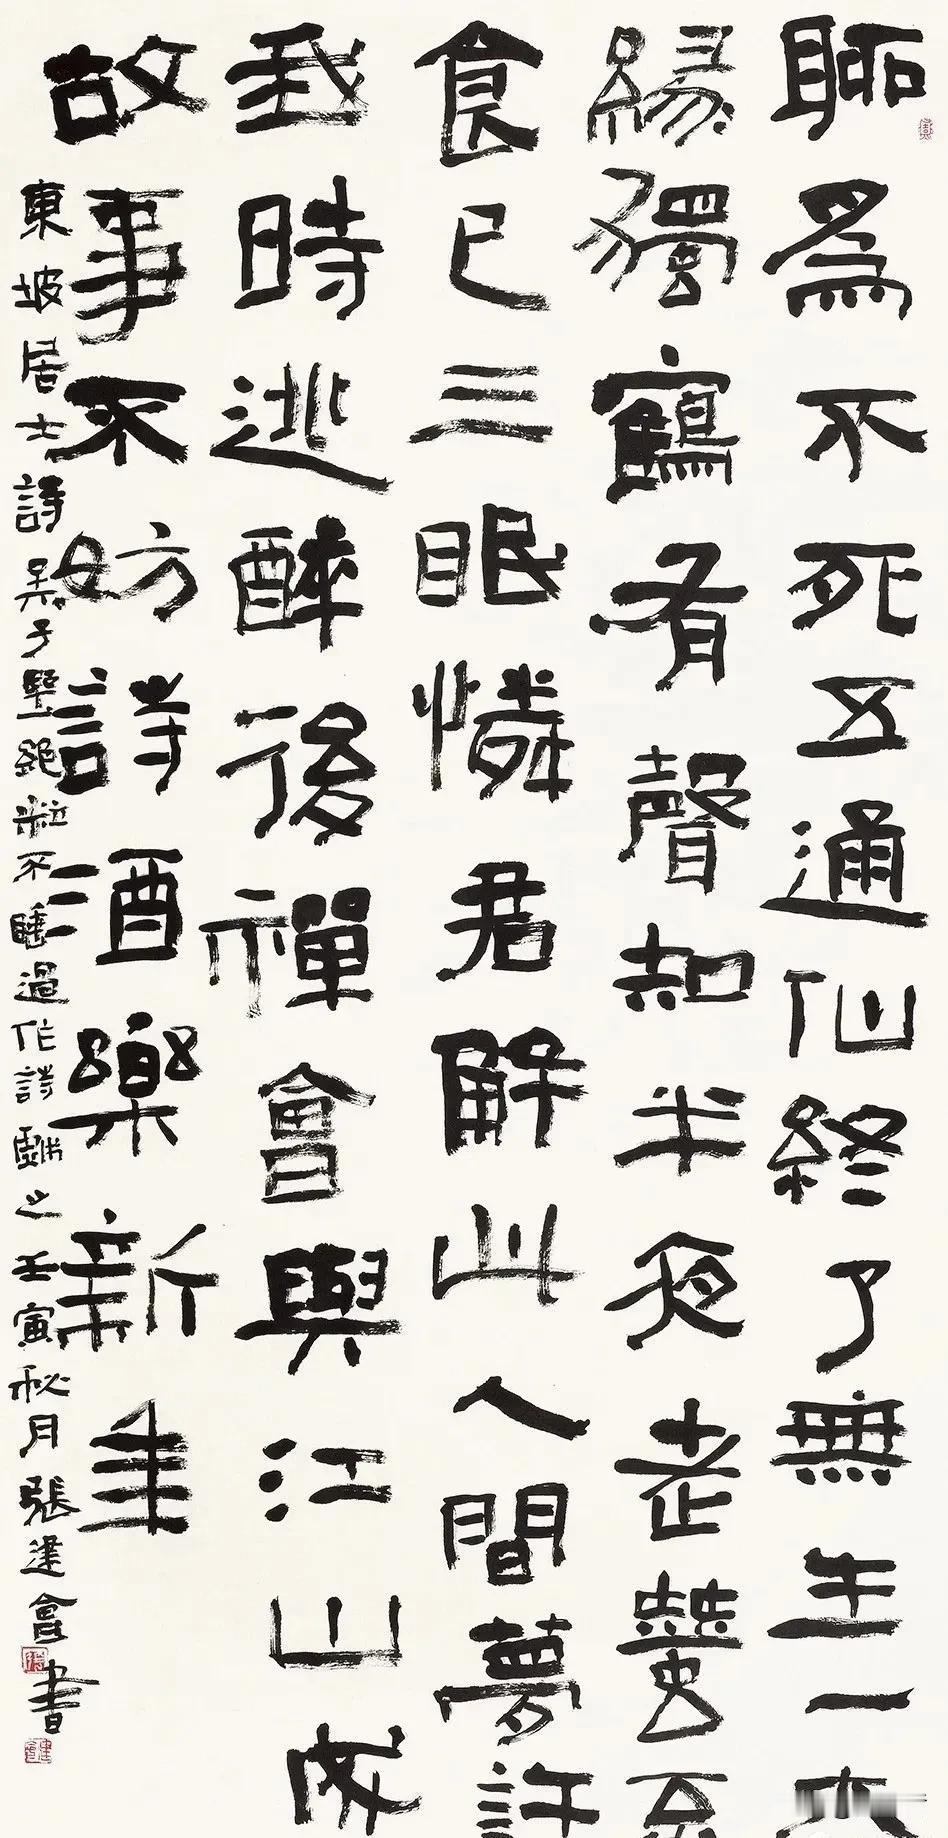 聊為不死五通仙終了無生一大
緣獨鶴有聲知半夜老蠶不
食已三眠憐君解比人間夢許
我時逃醉後禪會與江山成
故事不妨詩酒樂新年
東坡居士詩吳子壄絕粒不睡過作詩戲之壬寅秋月張建會書